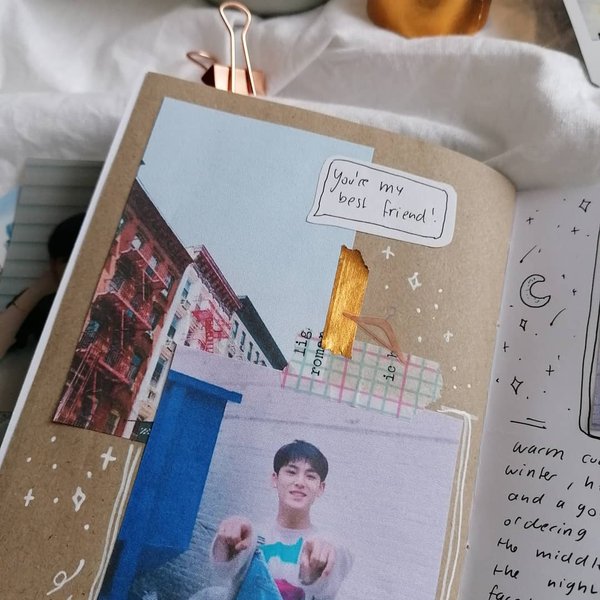 You're my
best friend!
lig
romer
warm
winter,
and a
ordering
the middle
the night